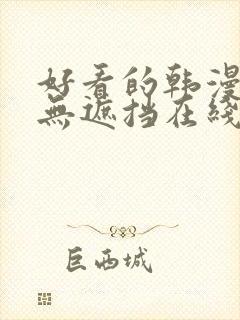 好看的韩漫
無遮挡在线
巨西城